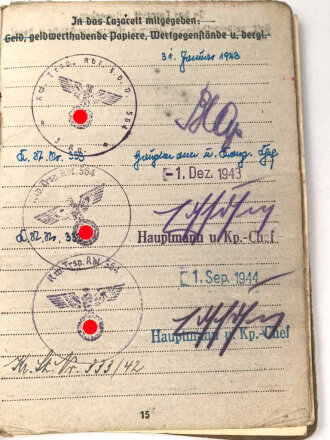 In das Lazarett mitgegeben:
Geld, geldwerthabende Papiere, Wertgegenstände u. dergl.
31. Januar 1943
K. St. Nr. 333
Hauptmann u. Komp. Chef
-1. Dez. 1943
Kf. Trsp. Abt. 564
K. St. Nr. 333
Hauptmann u. Kp.-Chef
-1. Sep. 1944
Kf. Trsp. Abt. 564
Hauptmann u. Kp.-Chef
Kr. St. Nr. 333/42
15